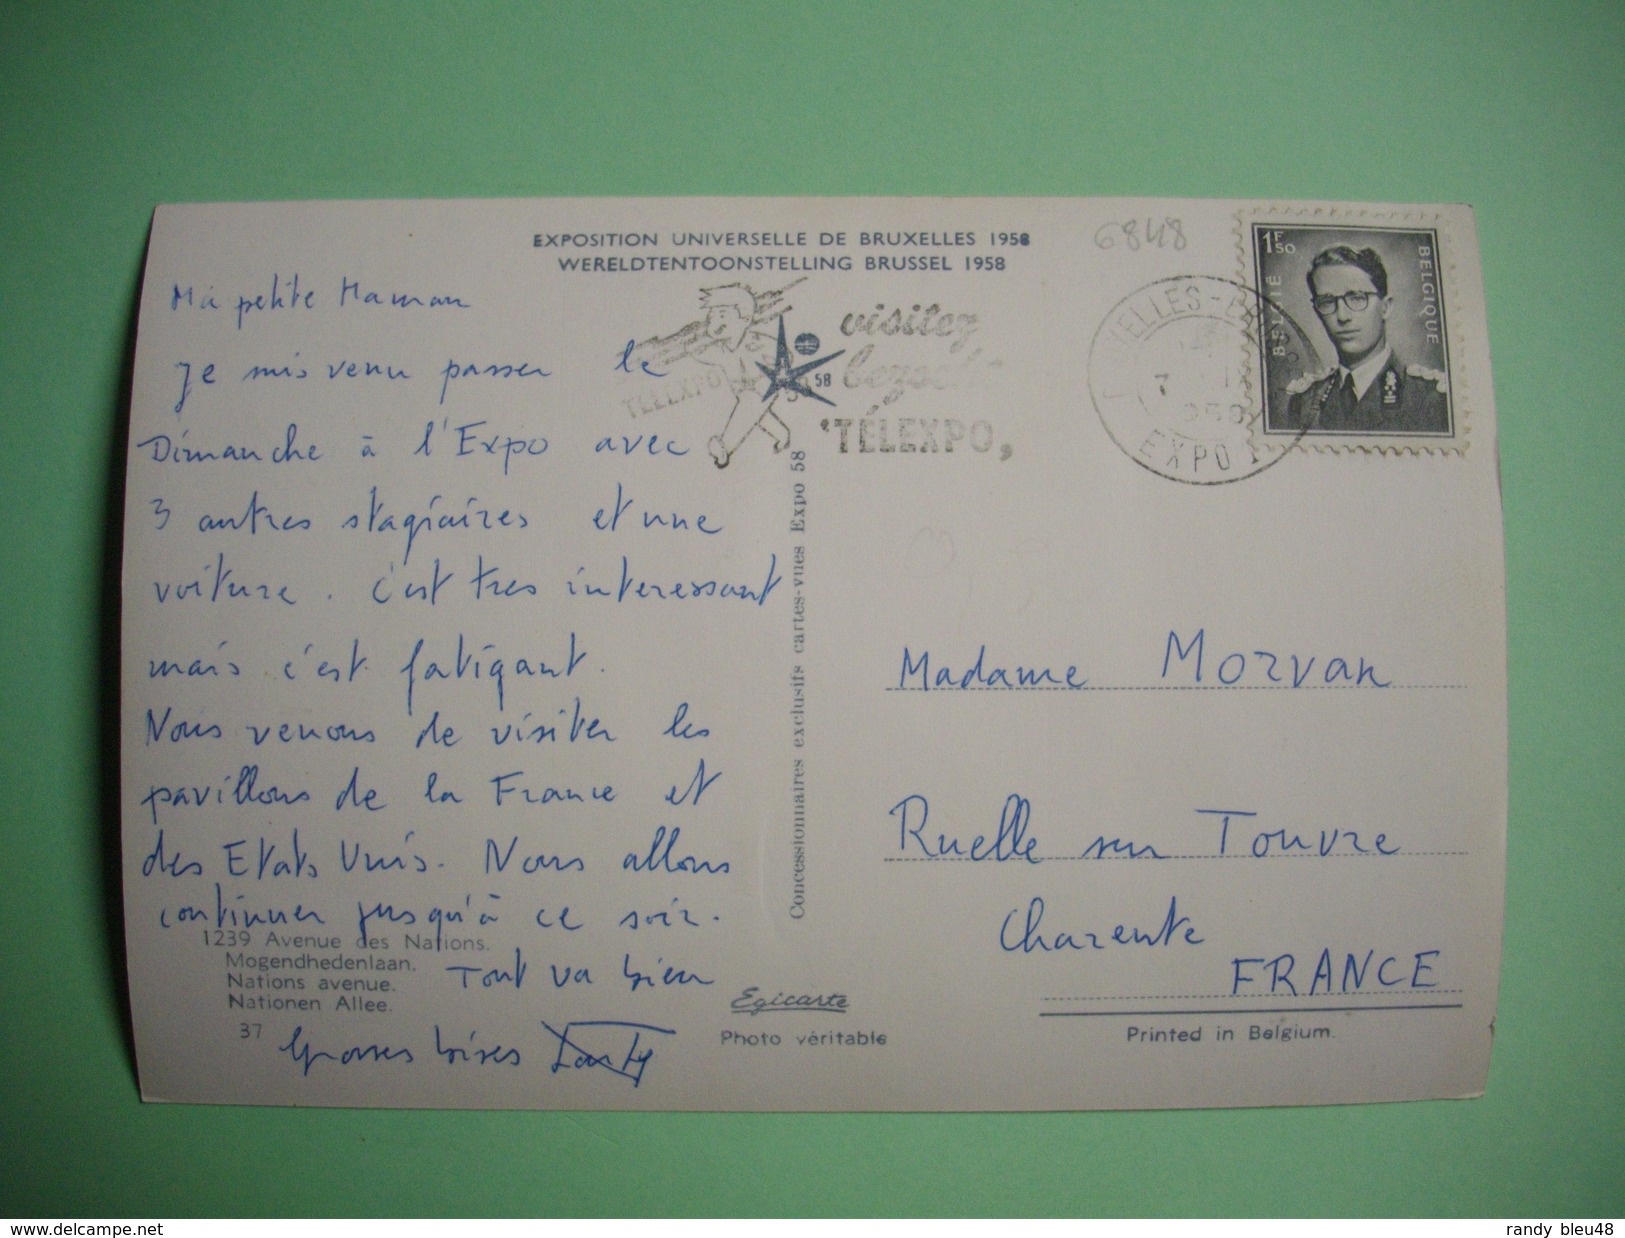 EXPOSITION UNIVERSELLE DE BRUXELLES 1958
WERELDTENTOONSTELLING BRUSSEL 1958
6848
1F50
BELGIË
BELGIQUE
EXPO
TELEXPO
58
visitez
bezoekt
"TÉLEXPO,
Ma petite Maman
Je suis venu passer le
Dimanche à l'Expo avec
3 autres stagiaires et une
voiture. C'est tres interessant
mais c'est fatigant.
Nous venons de visiter les
pavillons de la France et
des Etats Unis. Nous allons
continuer jusqu'à ce soir.
Tout va bien
Grosses bises
1239 Avenue des Nations.
Mogendhedenlaan.
Nations avenue.
Nationen Allee.
37
Concessionnaires exclusifs cartes-vues Expo 58
Egicarte
Photo véritable
Madame Morvan
Ruelle sur Touvre
Charente
FRANCE
Printed in Belgium.
www.delcampe.net
randy bleu48